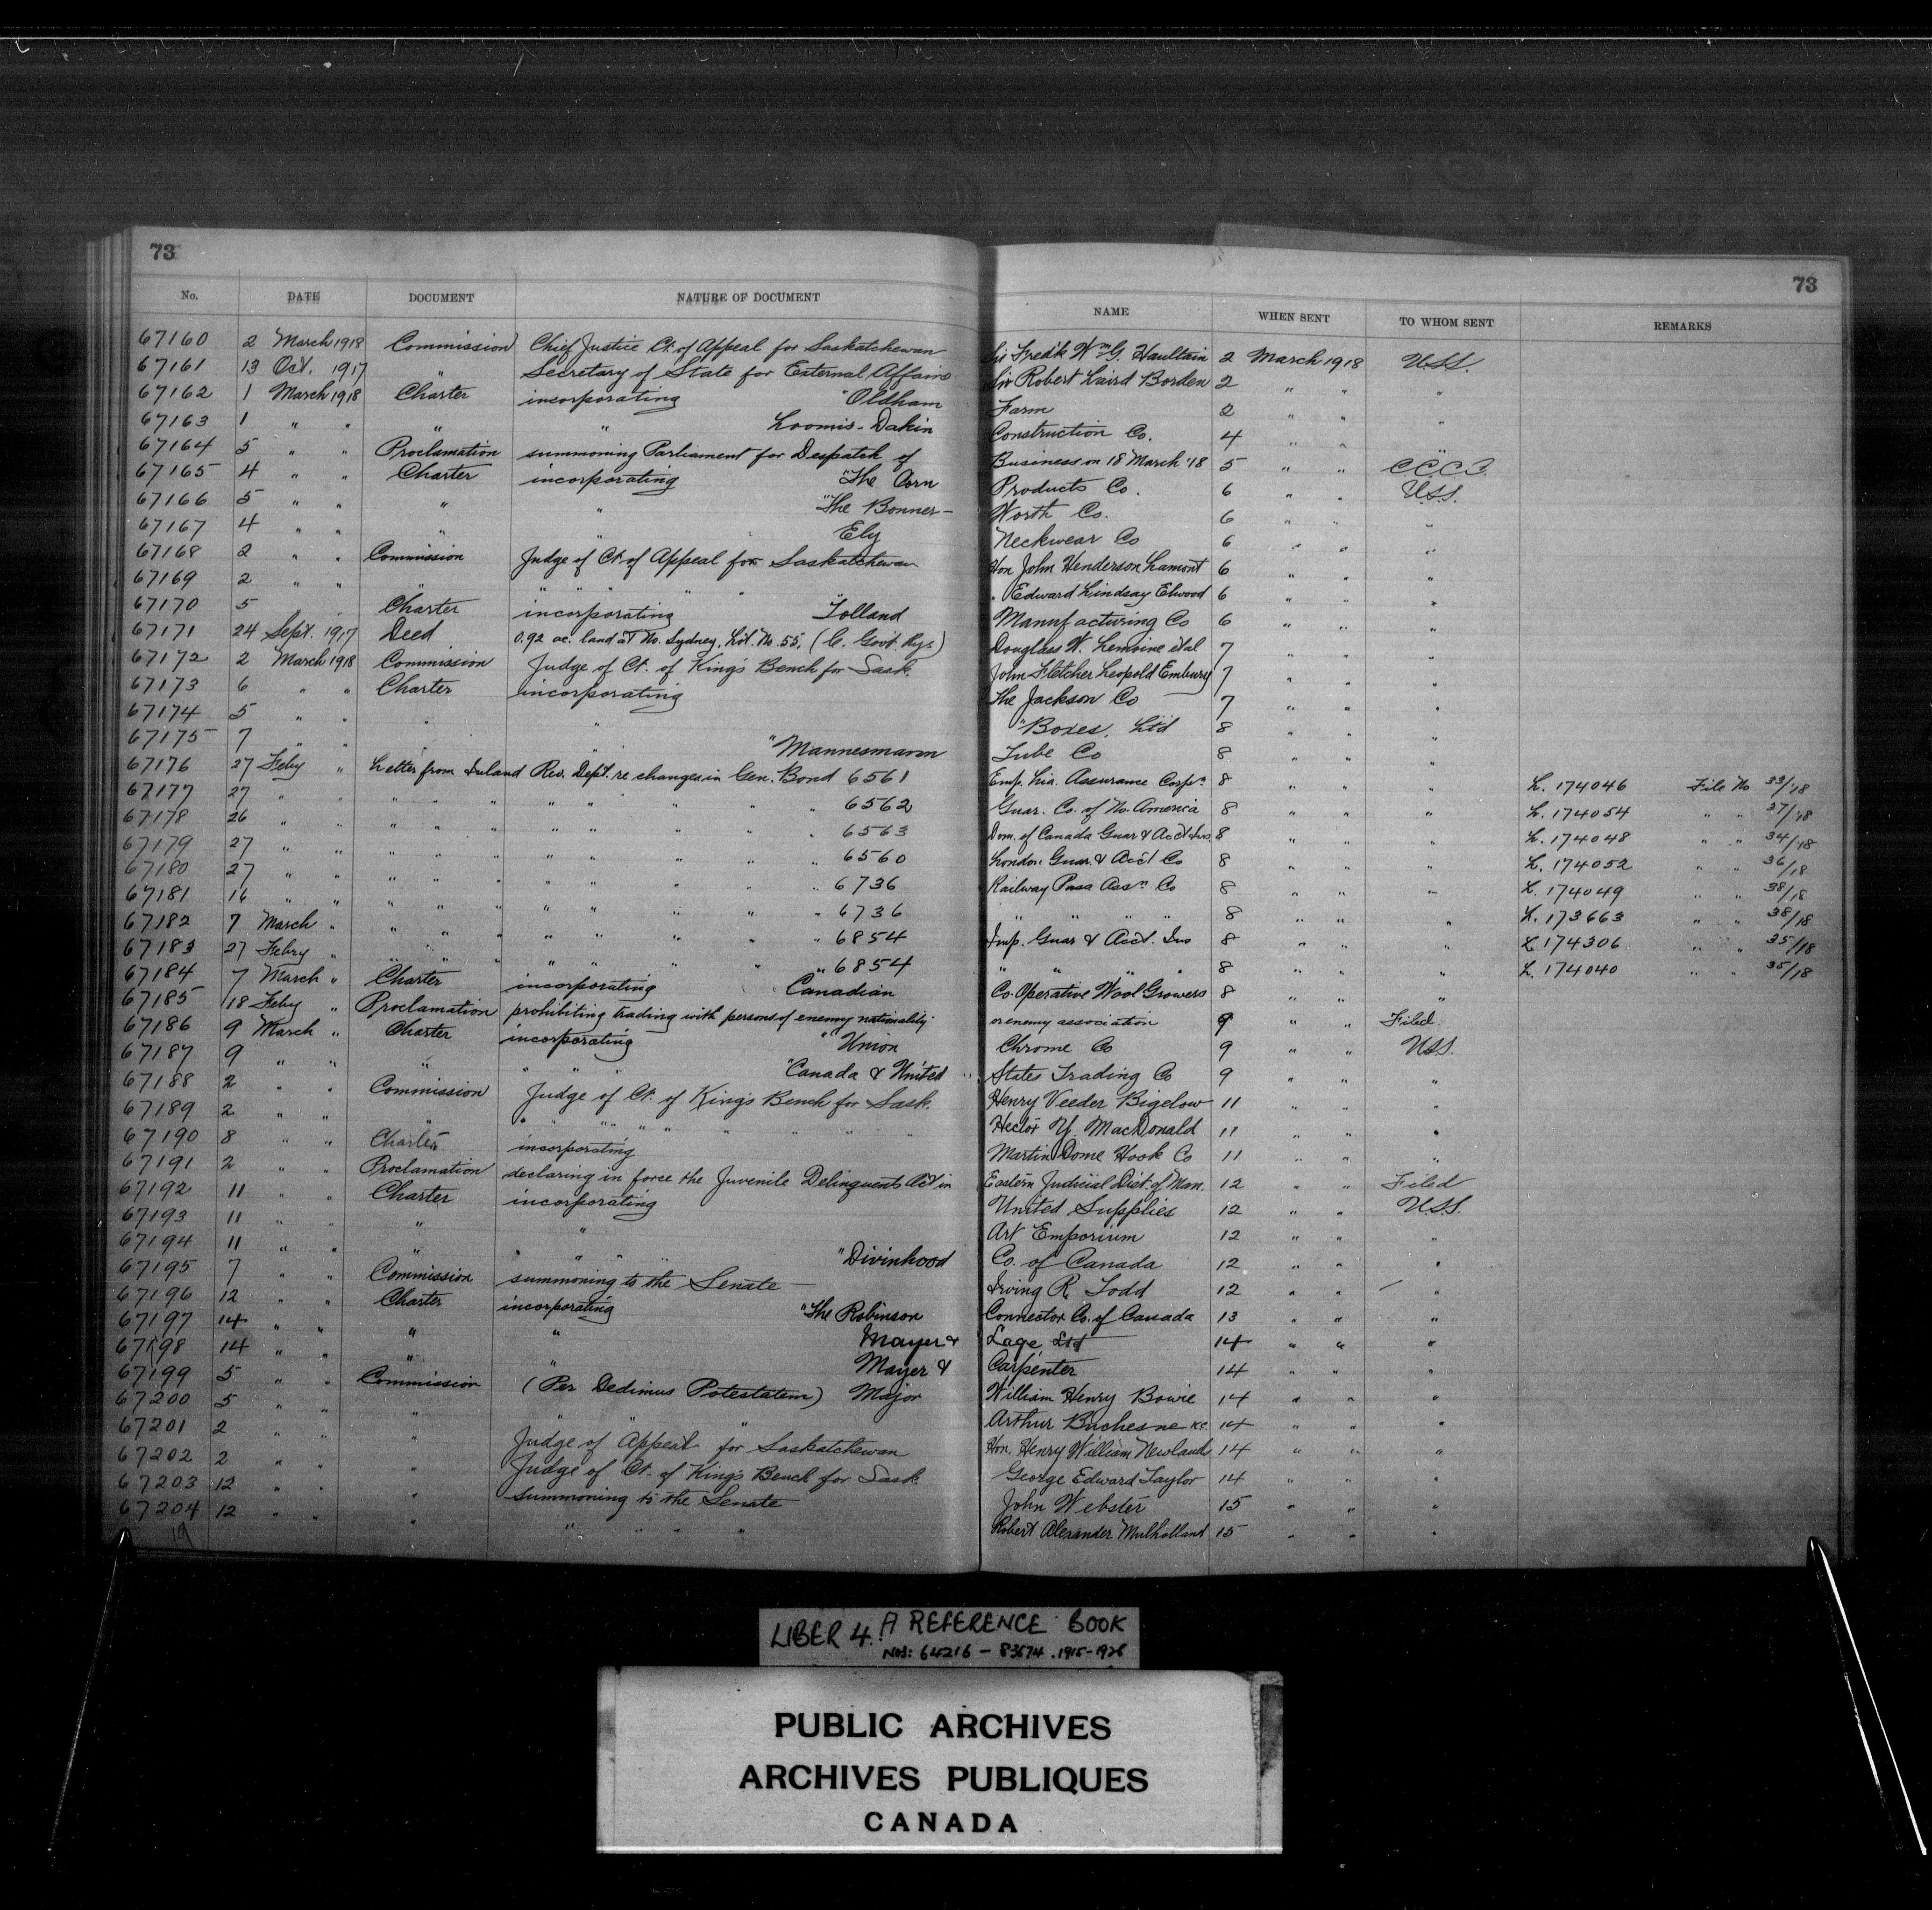 73
73
No. DATE DOCUMENT NATURE OF DOCUMENT NAME WHEN SENT TO WHOM SENT REMARKS
67160 2 March 1918 Commission Chief Justice Ct. of Appeal for Saskatchewan Sir Fredk Wm G. Haultain 2 March 1918 U.S.S.
67161 13 Oct. 1917 " Secretary of State for External Affairs Sir Robert Laird Borden 2 " " "
67162 1 March 1918 Charter incorporating "Oldham Farm 2 " " "
67163 1 " " " " Loomis-Dakin Construction Co. 4 " " "
67164 5 " " Proclamation summoning Parliament for Despatch of Business on 18 March '18 5 " " C.C.C.C.
67165 4 " " Charter incorporating "The Corn Products Co. 6 " " U.S.S.
67166 5 " " " " "The Bonner- Worth Co. 6 " " "
67167 4 " " " " Ely Neckwear Co 6 " " "
67168 2 " " Commission Judge of Ct. of Appeal for Saskatchewan Hon John Henderson Lamont 6 " " "
67169 2 " " " " " " " " Edward Lindsay Elwood 6 " " "
67170 5 " Charter incorporating "Tolland Manufacturing Co 6 " " "
67171 24 Sept. 1917 Deed 0.92 ac. land at No. Sydney, Lot. No. 55, (C. Govt. Rys.) Douglass W. Lemoine et al 7 " " "
67172 2 March 1918 Commission Judge of Ct. of King's Bench for Sask. John Fletcher Leopold Embury 7 " " "
67173 6 " " Charter incorporating The Jackson Co 7 " " "
67174 5 " " " " "Boxes, Ltd 8 " " "
67175 7 " " " " "Mannesmann Tube Co 8 " " "
67176 27 Feby " Letter from Inland Rev. Dept. re changes in Gen. Bond 6561 Emp. Lia. Assurance Corpn. 8 " " " L. 174046 File No 33/18
67177 27 " " " " " " " " " " 6562 Guar. Co. of No. America 8 " " " L. 174054 " " 37/18
67178 26 " " " " " " " " " " 6563 Dom. of Canada Guar & Acc't Ins. 8 " " " L. 174048 " " 34/18
67179 27 " " " " " " " " " " 6560 London Guar. & Acc't Co 8 " " " L. 174052 " " 36/18
67180 27 " " " " " " " " " " 6736 Railway Pass Assn. Co 8 " " " L. 174049 " " 38/18
67181 16 " " " " " " " " " " 6736 " " " " 8 " " " L. 173663 " " 38/18
67182 7 March " " " " " " " " " 6854 Imp. Guar & Acct. Ins 8 " " " L. 174306 " " 35/18
67183 27 Febry " " " " " " " " " 6854 " " " " 8 " " " L. 174040 " " 35/18
67184 7 March " Charter incorporating Canadian Co-Operative Wool Growers 8 " " "
67185 18 Feby " Proclamation prohibiting trading with persons of enemy nationality or enemy association 9 " " Filed.
67186 9 March " Charter incorporating "Union Chrome Co 9 " " U.S.S.
67187 9 " " " " " " "Canada & United States Trading Co 9 " " "
67188 2 " " Commission Judge of Ct. of King's Bench for Sask. Henry Veeder Bigelow 11 " " "
67189 2 " " " " " " " " " " Hector Y. MacDonald 11 " " "
67190 8 " " Charter incorporating Martin Dome Hook Co 11 " " "
67191 2 " " Proclamation declaring in force the Juvenile Delinquents Act in Eastern Judicial Dist. of Man. 12 " " Filed
67192 11 " " Charter incorporating United Supplies 12 " " U.S.S.
67193 11 " " " " Art Emporium 12 " " "
67194 11 " " " " " " "Divinhood Co. of Canada 12 " " "
67195 7 " " Commission summoning to the Senate — Irving R. Todd 12 " " "
67196 12 " " Charter incorporating "The Robinson Connector Co. of Canada 13 " " "
67197 14 " " " " Mayer & Lage, Ltd 14 " " "
67198 14 " " " " Mayer & Carpenter 14 " " "
67199 5 " " Commission (Per Dedimus Potestatem) Major William Henry Bowie 14 " " "
67200 5 " " " " " " Arthur Buchesne K.C. 14 " " "
67201 2 " " " Judge of Appeal for Saskatchewan Hon. Henry William Newlands 14 " " "
67202 2 " " " Judge of Ct. of King's Bench for Sask. George Edward Taylor 14 " " "
67203 12 " " " summoning to the Senate John Webster 15 " " "
67204 12 " " " " " " " Robert Alexander Mulholland 15 " " "
19
LIBER 4. A REFERENCE BOOK
NOS: 64216 - 83674 . 1915-1928
PUBLIC ARCHIVES
ARCHIVES PUBLIQUES
CANADA